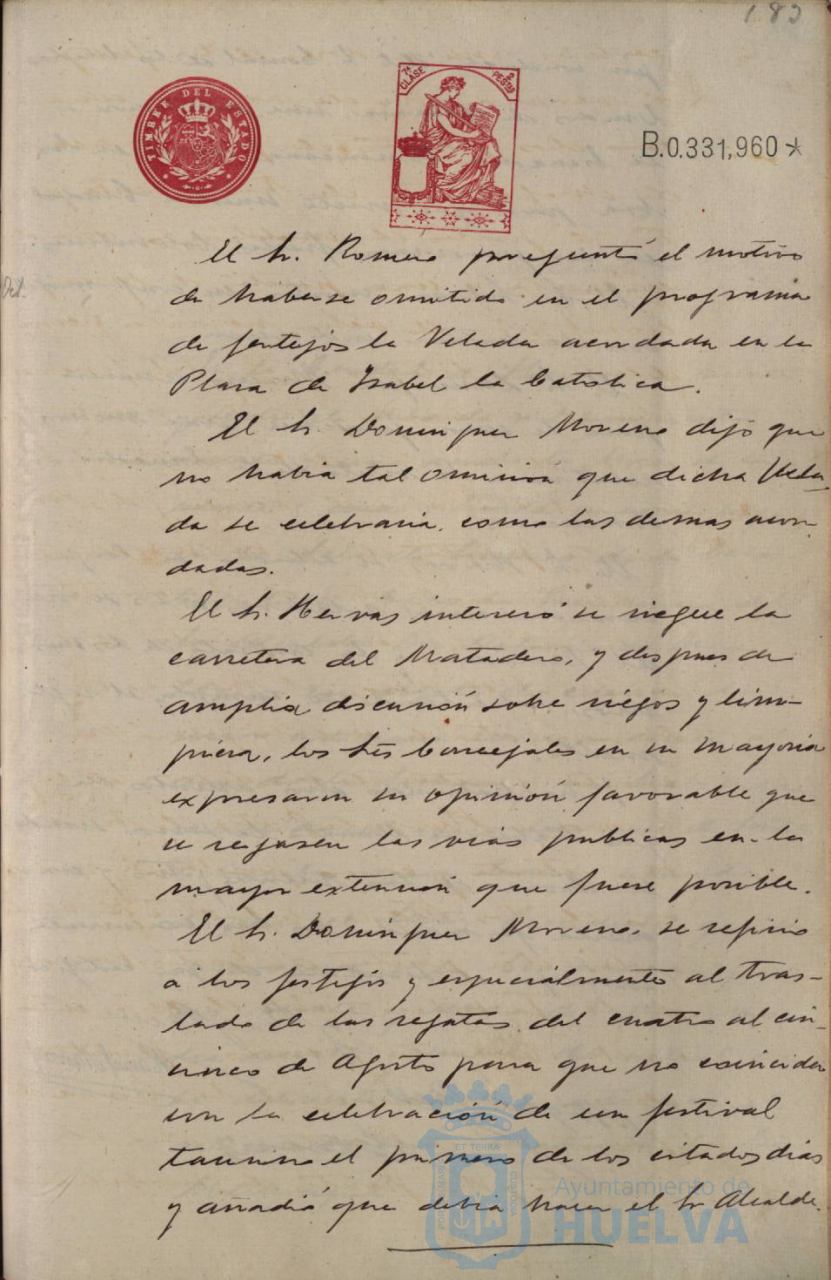 182
TIMBRE DEL ESTADO
7ª CLASE
2 PESTAS
B.0.331,960*
El Sr. Romero preguntó el motivo
de haberse omitido en el programa
de festejos la Velada acordada en la
Plaza de Isabel la Catolica.
El Sr. Dominguez Moreno dijo que
no habia tal omisión que dicha Vela-
da se celebraria como las demas acor-
dadas.
El Sr. Hervás interesó se riegue la
carretera del Matadero, y despues de
amplia discusión sobre riegos y lim-
pieza, los Sres Concejales en su mayoria
expresaron su opinión favorable que
se regasen las vias publicas en la
mayor extensión que fuese posible.
El Sr. Dominguez Moreno, se refirió
a los festejos y especialmente al tras-
lado de las regatas del cuatro al cin-
cinco de Agosto para que no coincidan
con la celebración de un festival
taurino el primero de los citados dias
y añadió que debia hacer el Sr Alcalde
Ayuntamiento de
HUELVA